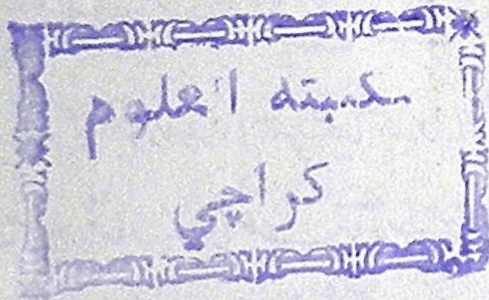 مكتبته العلوم
كراچي